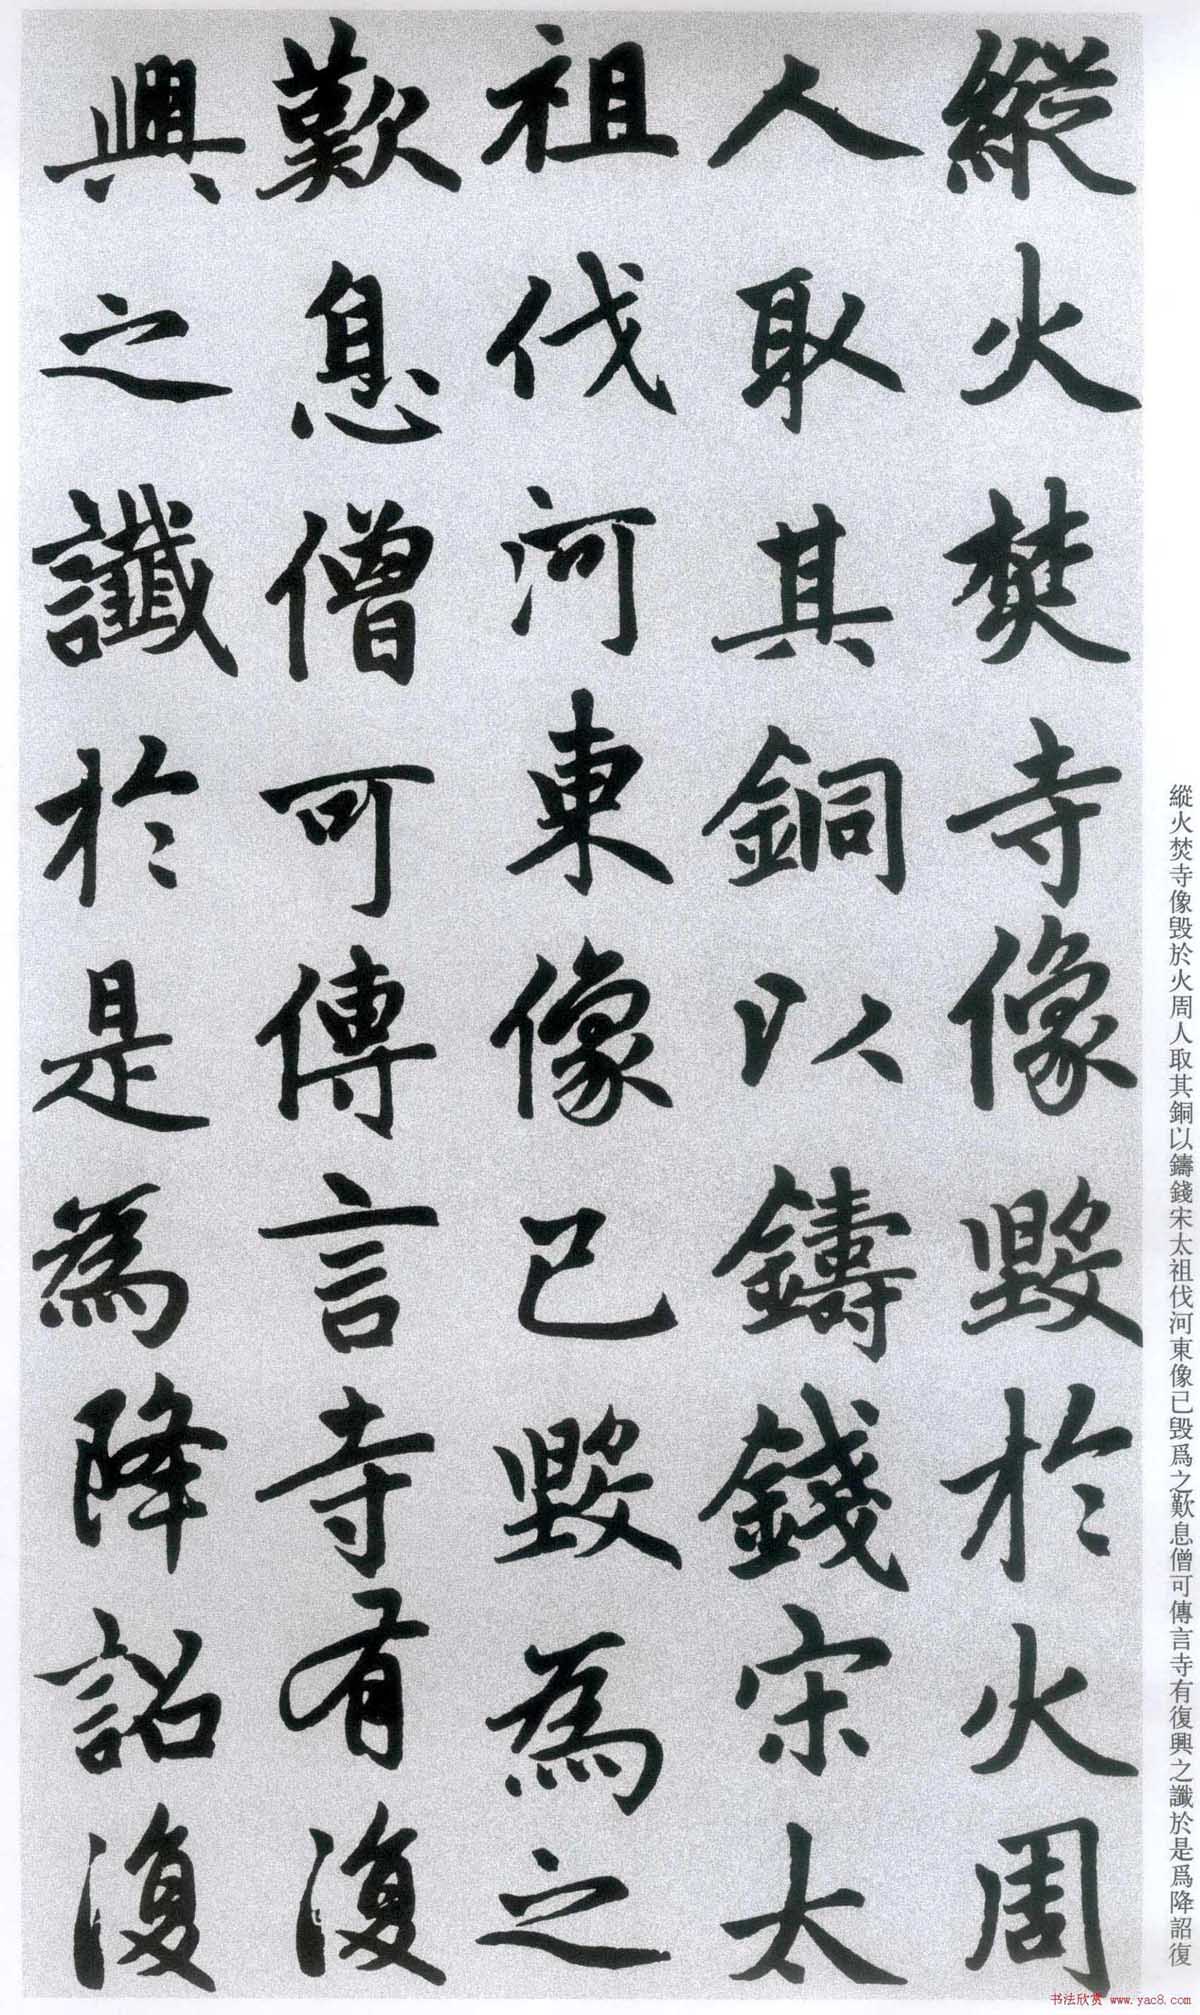 縱火焚寺像毀於火周
人取其銅以鑄錢宋太
祖伐河東像已毀為之
歎息僧可傳言寺有復
興之讖於是為降詔復
縱火焚寺像毀於火周人取其銅以鑄錢宋太祖伐河東像已毀爲之歎息僧可傳言寺有復興之讖於是爲降詔復
书法欣赏 www.yac8.com